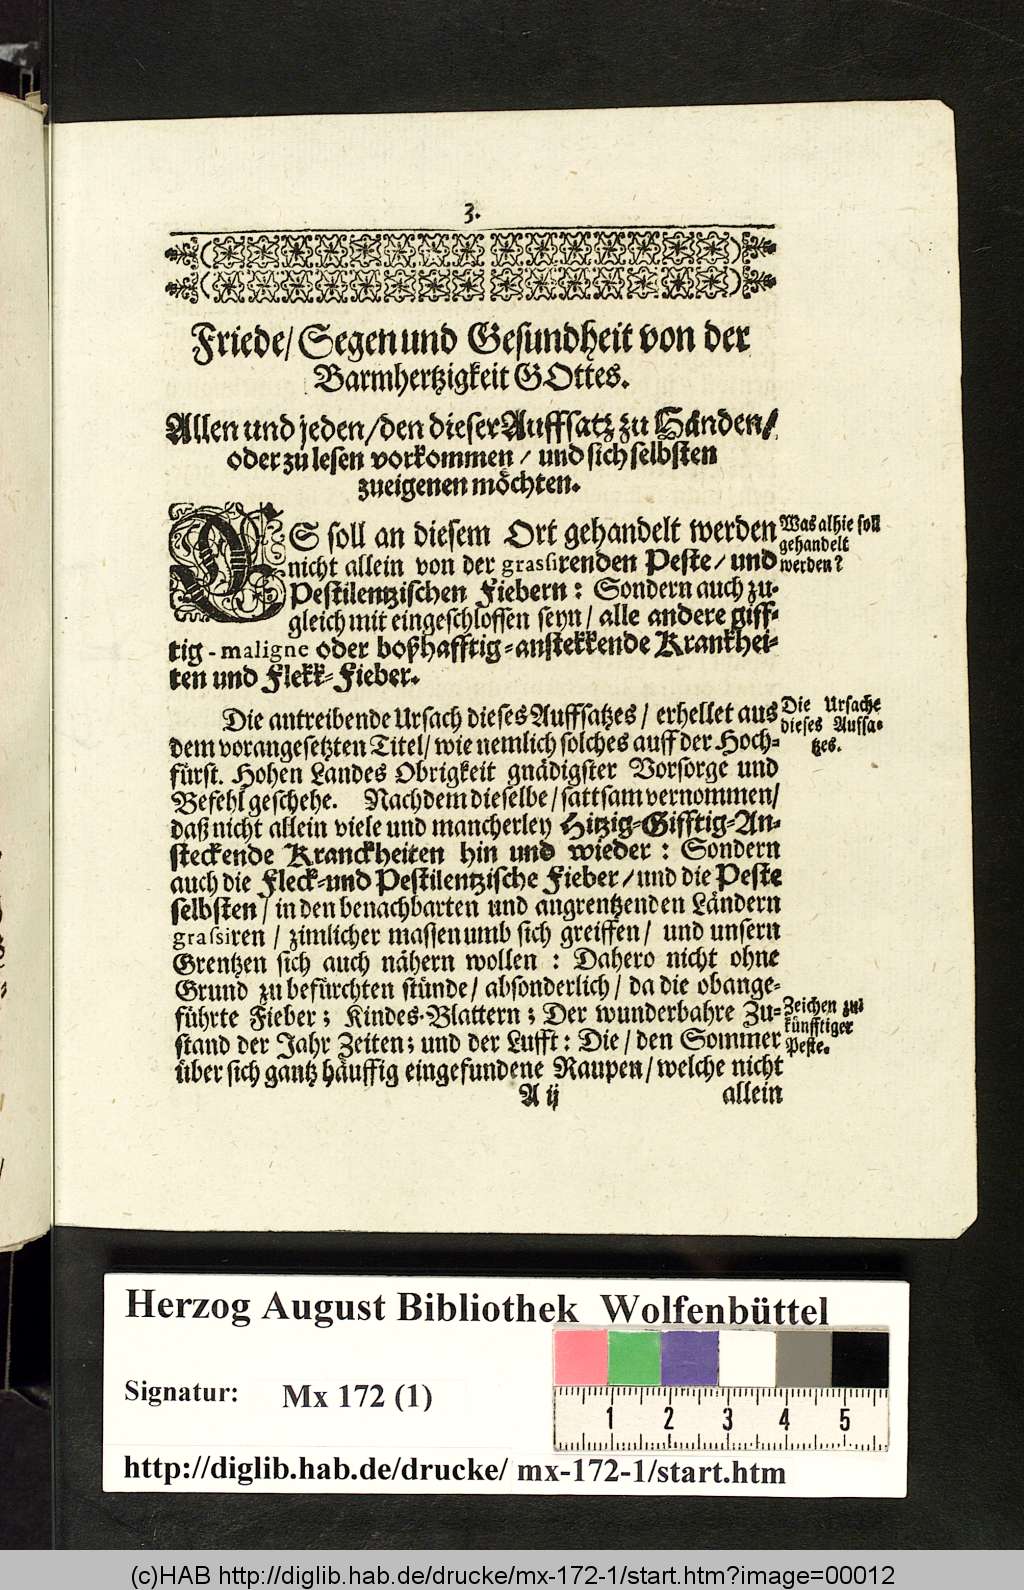 3.
Friede/ Segen und Gesundheit von der
Barmhertzigkeit GOttes.
Allen und jeden/den dieser Auffsatz zu Händen/
oder zu lesen vorkommen / und sich selbsten
zueigenen möchten.
ES soll an diesem Ort gehandelt werden
nicht allein von der grassirenden Peste/ und
Pestilentzischen Fiebern: Sondern auch zu-
gleich mit eingeschlossen seyn/ alle andere giff-
tig-maligne oder boßhafftig-anstekkende Krankhei-
ten und Flekk-Fieber.
Was alhie soll
gehandelt
werden?
Die antreibende Ursach dieses Auffsatzes/ erhellet aus
dem vorangesetzten Titel/ wie nemlich solches auff der Hoch-
fürst. Hohen Landes Obrigkeit gnädigster Vorsorge und
Befehl geschehe. Nachdem dieselbe/ sattsam vernommen/
daß nicht allein viele und mancherley Hitzig-Gifftig-An-
steckende Kranckheiten hin und wieder: Sondern
auch die Fleck-und Pestilentzische Fieber/ und die Peste
selbsten/ in den benachbarten und angrentzenden Ländern
grassiren/ zimlicher massen umb sich greiffen/ und unsern
Grentzen sich auch nähern wollen: Dahero nicht ohne
Grund zu befürchten stünde/ absonderlich/ da die obange-
führte Fieber; Kindes-Blattern; Der wunderbahre Zu-
stand der Jahr Zeiten; und der Lufft: Die/ den Sommer
über sich gantz häuffig eingefundene Raupen/ welche nicht
Die Ursache
dieses Auffsa-
tzes.
Zeichen zu-
künfftiger
Peste.
A ij
allein
Herzog August Bibliothek Wolfenbüttel
Signatur: Mx 172 (1)
1 2 3 4 5
http://diglib.hab.de/drucke/ mx-172-1/start.htm
(c)HAB http://diglib.hab.de/drucke/mx-172-1/start.htm?image=00012